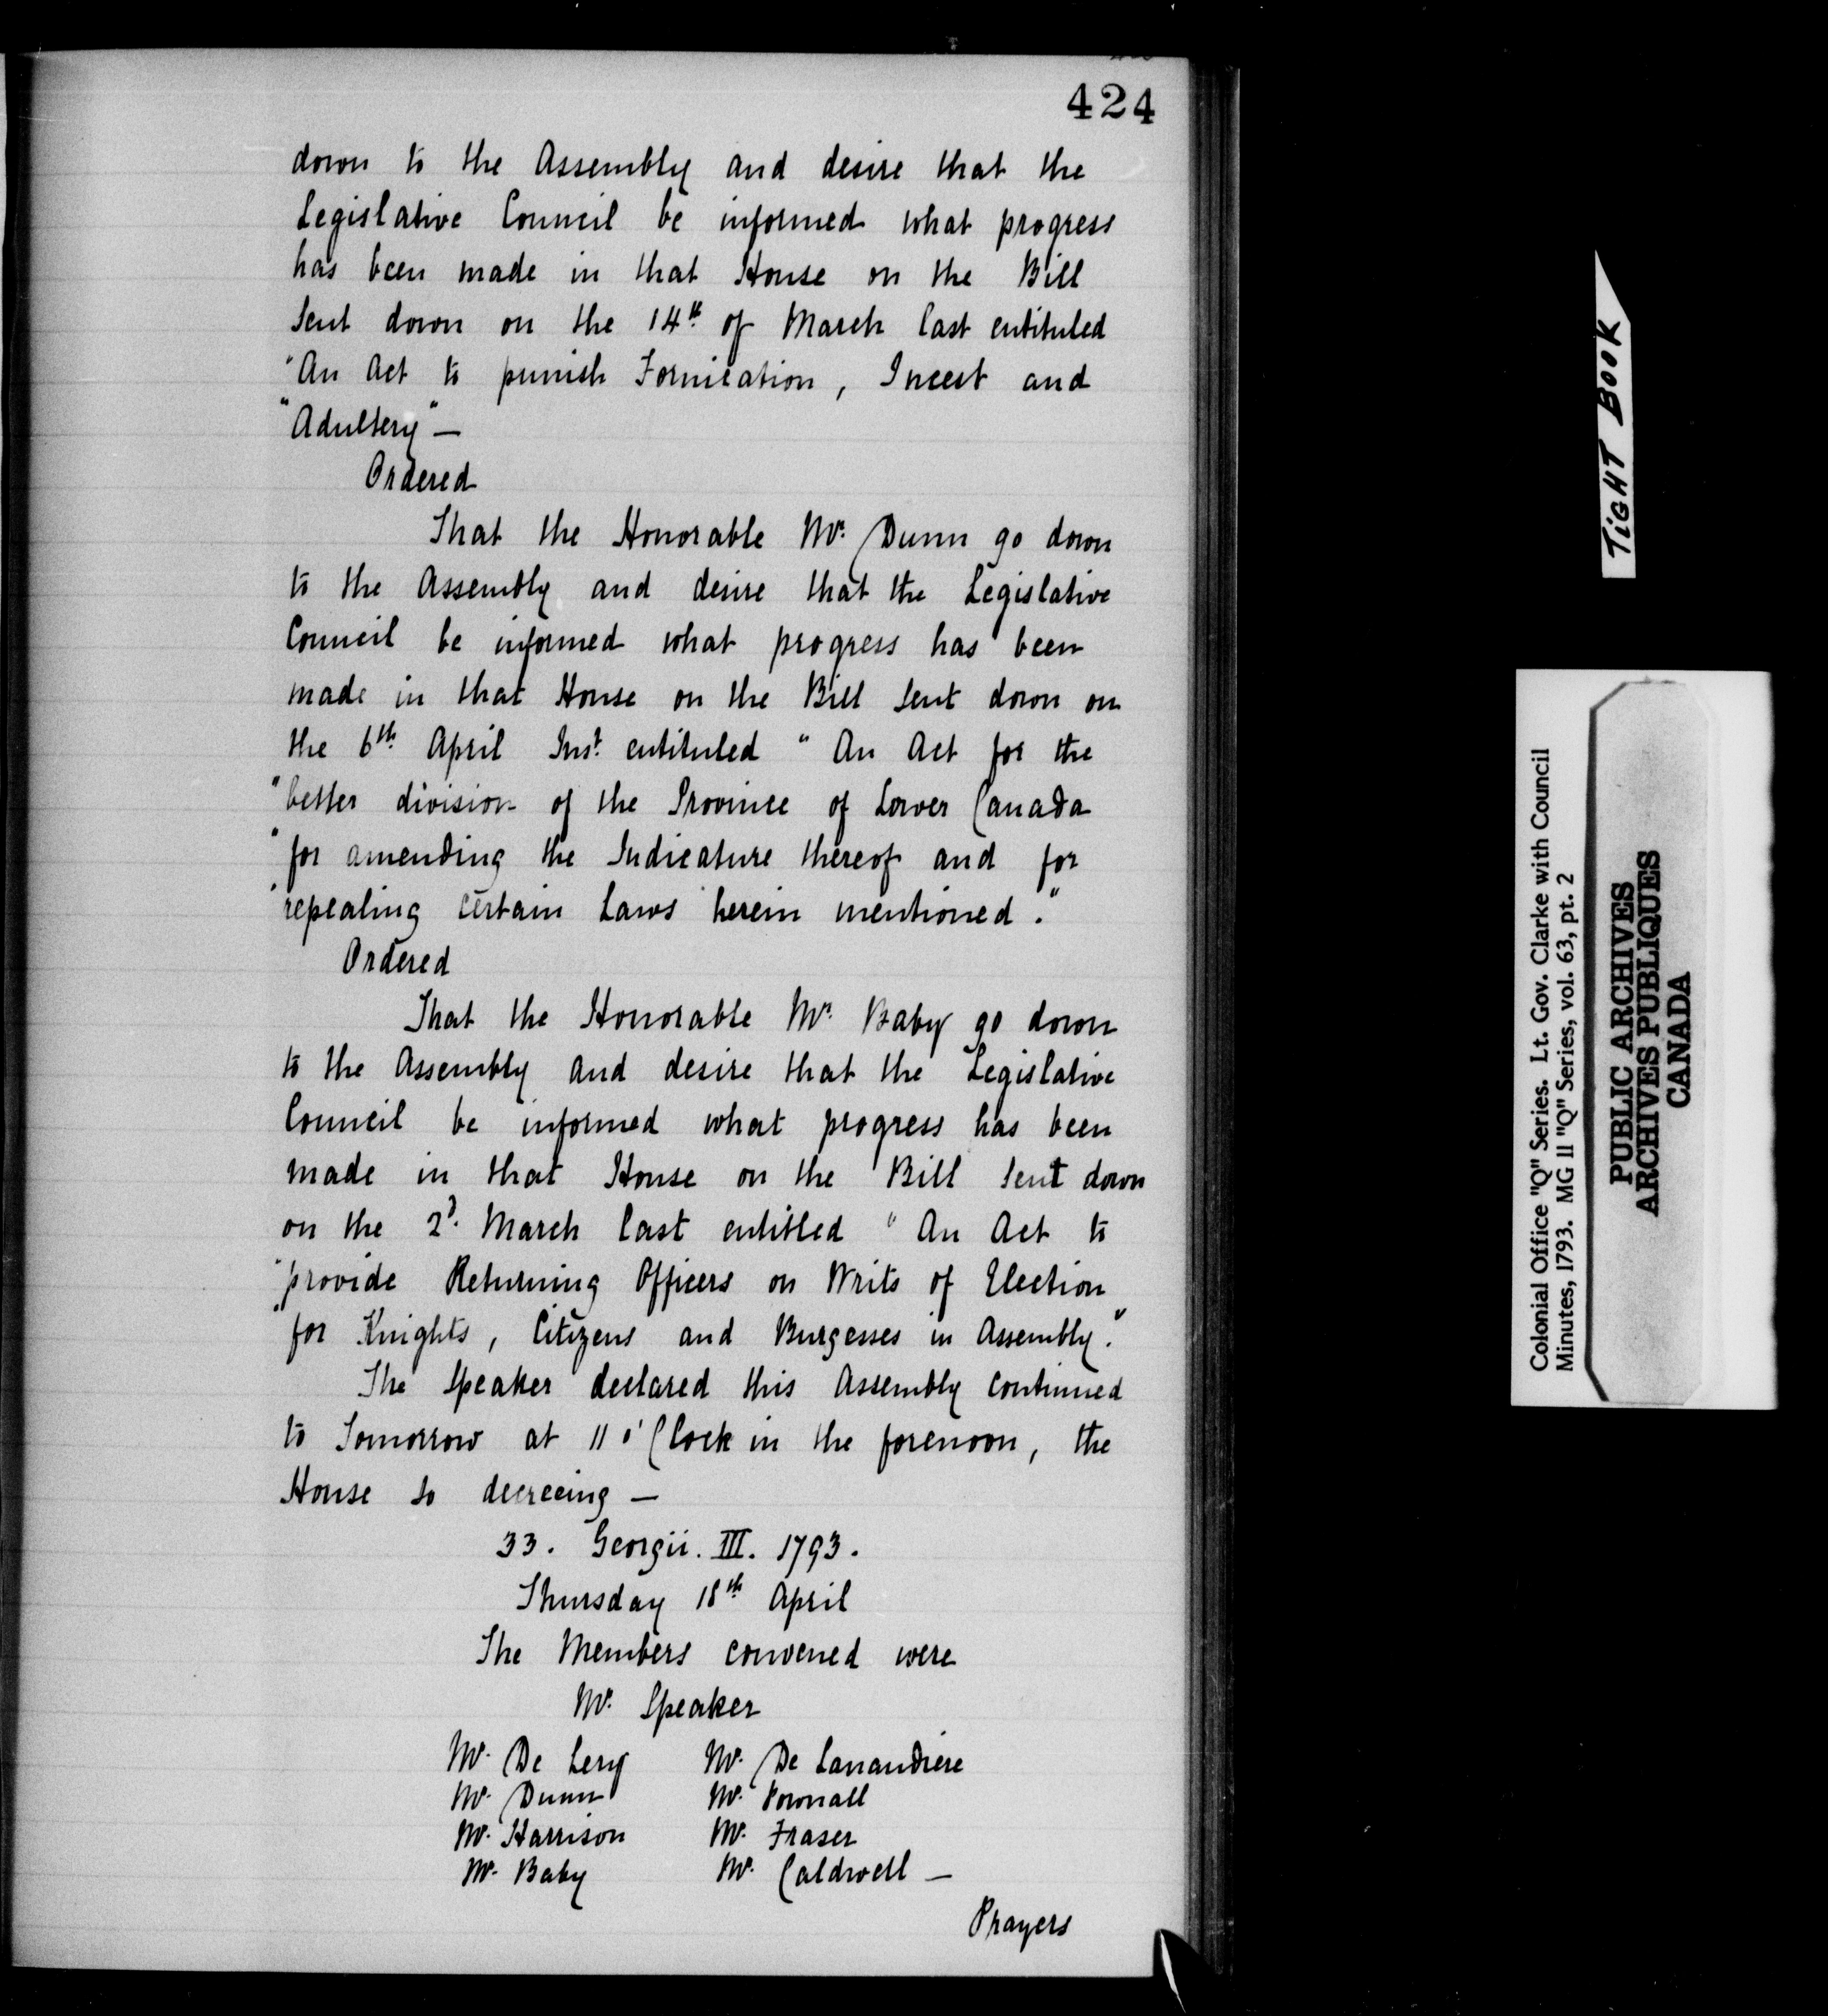 424
down to the Assembly and desire that the
Legislative Council be informed what progress
has been made in that House on the Bill
sent down on the 14th. of March last entituled
"An Act to punish Fornication, Incest and
"Adultery" —
Ordered
That the Honorable Mr. Dunn go down
to the Assembly and desire that the Legislative
Council be informed what progress has been
made in that House on the Bill sent down on
the 6th. April Inst. entituled "An Act for the
"better division of the Province of Lower Canada
"for amending the Judicature thereof and for
"repealing certain Laws herein mentioned."
Ordered
That the Honorable Mr. Baby go down
to the Assembly and desire that the Legislative
Council be informed what progress has been
made in that House on the Bill sent down
on the 2d. March last entitled "An Act to
"provide Returning Officers on Writs of Election
"for Knights, Citizens and Burgesses in Assembly."
The Speaker declared this Assembly continued
to Tomorrow at 11 o'Clock in the forenoon, the
House so decreeing —
33. Georgii. III. 1793.
Thursday 18th. April
The Members convened were
Mr. Speaker
Mr. De Lery Mr. De Lanaudiere
Mr. Dunn Mr. Pownall
Mr. Harrison Mr. Fraser
Mr. Baby Mr. Caldwell —
Prayers
TIGHT BOOK
Colonial Office "Q" Series. Lt. Gov. Clarke with Council
Minutes, 1793. MG 11 "Q" Series, vol. 63, pt. 2
PUBLIC ARCHIVES
ARCHIVES PUBLIQUES
CANADA